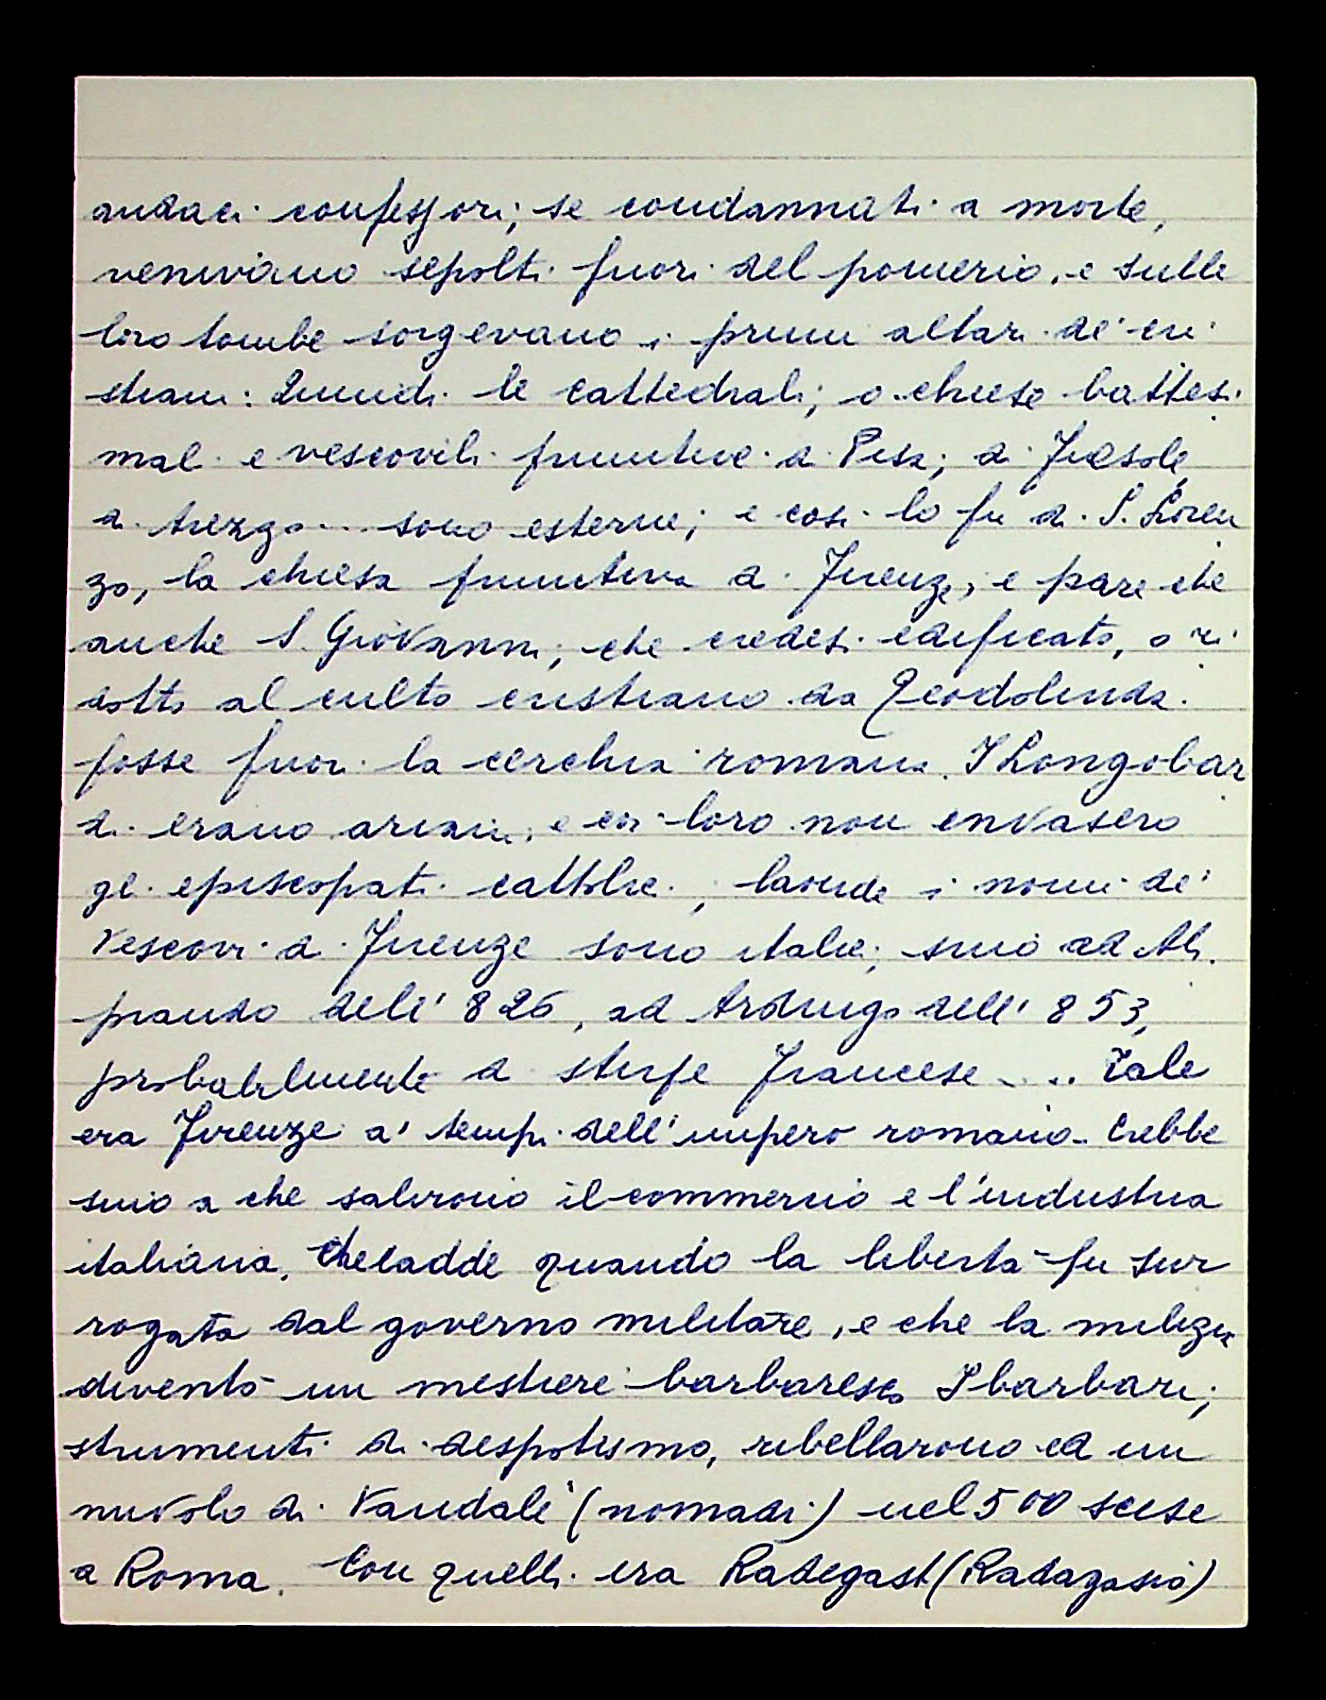 audaci confessori; se condannati a morte,
venivano sepolti fuori del pomerio, e sulle
loro tombe sorgevano i primi altari de' cri
stiani: Quindi le cattedrali, o chiese battesi
mali e vescovili primitive a Pisa, a Fiesole,
a Arezzo... sono esterne; e così lo fu di S. Loren
zo, la chiesa primitiva di Firenze; e pare che
anche S. Giovanni, che credesi edificato, o ri
dotto al culto cristiano da Teodolinda.
fosse fuori la cerchia romana. I Longobar
di erano ariani, e coi loro non invasero
gl. episcopati cattolici, laonde i nomi de'
Vescovi di Firenze sono italici, sino ad Ali
prando dell' 826, ad Ardingo dell' 853,
probabilmente di stirpe francese .... Tale
era Firenze a' tempi dell'impero romano. Crebbe
sino a che salirono il commercio e l'industria
italiana, decadde quando la libertà fu sur
rogata dal governo militare, e che la milizia
diventò un mestiere barbaresco I barbari,
strumenti di despotismo, ribellarono ed un
nuvolo di Vandali (nomadi) nel 500 scese
a Roma. Con quelli era Radegast (Radagasio)